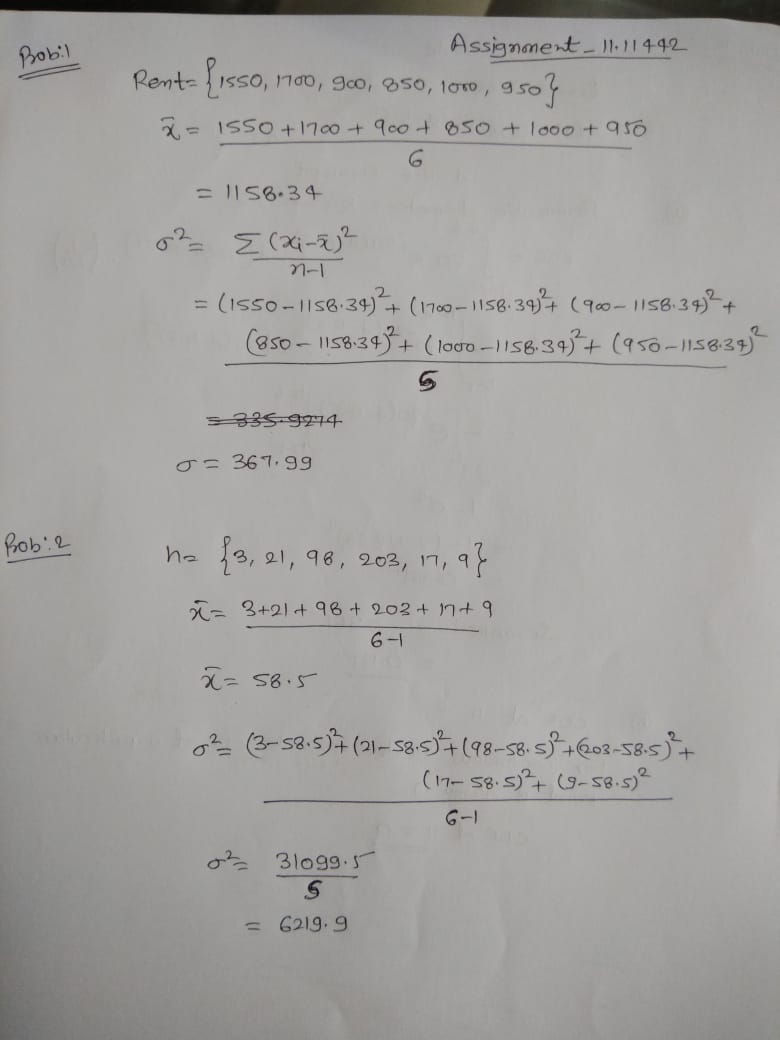 Assignment - 11.11442
Prob:1
Rent = {1550, 1700, 900, 850, 1000, 950}
x̄ = 1550 + 1700 + 900 + 850 + 1000 + 950
6
= 1158.34
σ² = Σ (xi - x̄)²
n-1
= (1550 - 1158.34)² + (1700 - 1158.34)² + (900 - 1158.34)² +
(850 - 1158.34)² + (1000 - 1158.34)² + (950 - 1158.34)²
5
= 335.9274
σ = 367.99
Prob:2
h = {3, 21, 98, 203, 17, 9}
x̄ = 3+21 + 98 + 203 + 17 + 9
6-1
x̄ = 58.5
σ² = (3-58.5)² + (21-58.5)² + (98-58.5)² + (203-58.5)² +
(17-58.5)² + (9-58.5)²
6-1
σ² = 31099.5
5
= 6219.9